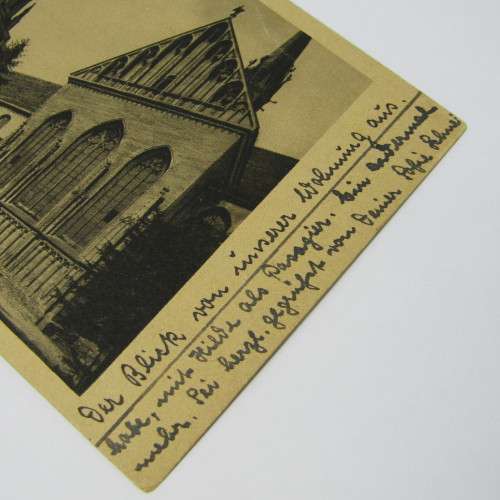 Der Blick von unserer Wohnung aus.
habe, mit Hilde als Passagier. Ein andermal
mehr. Sei herzl. gegrüßt von Deiner